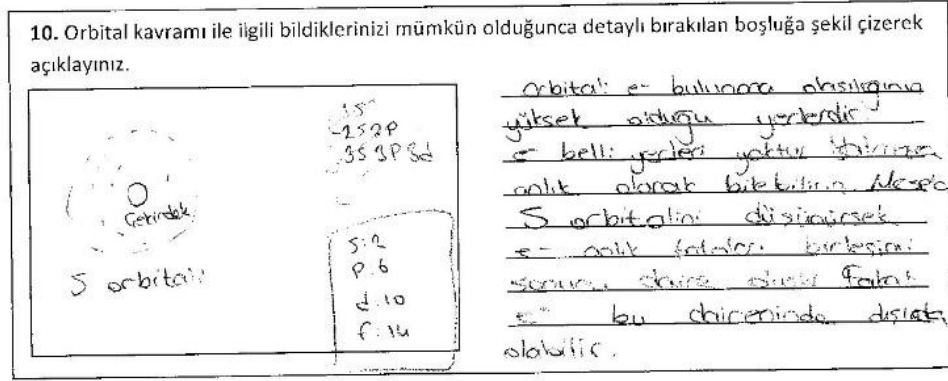 10. Orbital kavramı ile ilgili bildiklerinizi mümkün olduğunca detaylı bırakılan boşluğa şekil çizerek
açıklayınız.
1s
2s2p
3s3p3d
Çekirdek
S orbitali
S:2
P:6
d:10
f:14
Orbital: e- bulunma olasılığının
yüksek olduğu yerlerdir
e- belli yerleri yoktur
anlık olarak bilebiliriz Mesela
S orbitalini düşünürsek
e- anlık birleşimi
sonucu daire Fakat
e- bu daireninde dışında
olabilir.